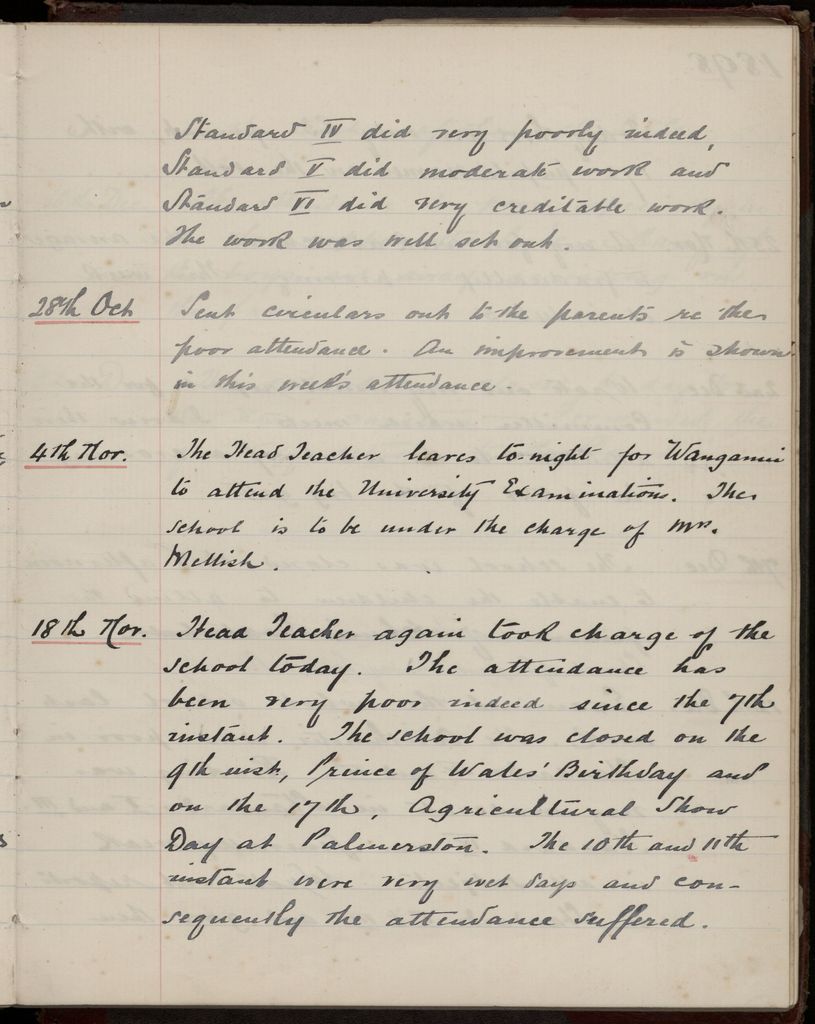 Standard IV did very poorly indeed,
Standard V did moderate work and
Standard VI did very creditable work.
The work was well set out.
28th Oct Sent circulars out to the parents re the
poor attendance. An improvement is shown
in this week's attendance.
4th Nov. The Head Teacher leaves to-night for Wanganui
to attend the University Examinations. The
school is to be under the charge of Mrs.
Mellish.
18th Nov. Head Teacher again took charge of the
school today. The attendance has
been very poor indeed since the 7th
instant. The school was closed on the
9th inst, Prince of Wales' Birthday and
on the 17th, Agricultural Show
Day at Palmerston. The 10th and 11th
instant were very wet days and con-
sequently the attendance suffered.